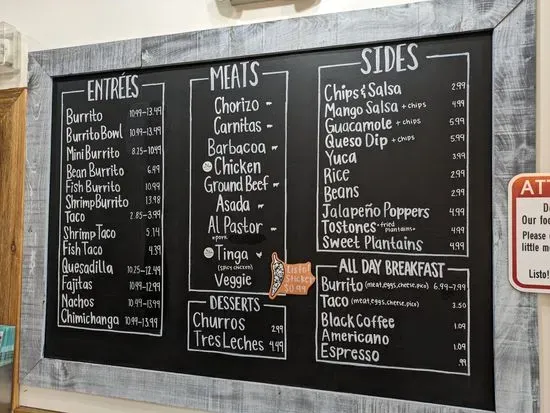 ENTRÉES
Burrito 10.99-13.99
Burrito Bowl 10.99-13.99
Mini Burrito 8.25-10.49
Bean Burrito 6.99
Fish Burrito 10.99
Shrimp Burrito 13.98
Taco 2.85-3.99
Shrimp Taco 5.14
Fish Taco 4.39
Quesadilla 10.25-12.49
Fajitas 10.99-12.99
Nachos 10.99-13.99
Chimichanga 10.99-13.99
MEATS
Chorizo
Carnitas
Barbacoa
Chicken
Ground Beef
Asada
Al Pastor
*pork
Tinga
(spicy chicken)
Veggie
Listo!
Sticker
$0.99
DESSERTS
Churros 2.99
Tres Leches 4.49
SIDES
Chips & Salsa 2.99
Mango Salsa + chips 4.99
Guacamole + chips 5.99
Queso Dip + chips 5.99
Yuca 3.99
Rice 2.99
Beans 2.99
Jalapeño Poppers 4.99
Tostones *fried plantains* 4.99
Sweet Plantains 4.99
ALL DAY BREAKFAST
Burrito (meat, eggs, cheese, pico) 6.99-7.99
Taco (meat, eggs, cheese, pico) 3.50
Black Coffee 1.09
Americano 1.09
Espresso .99
ATT
Our foo
Please
little m
Listo!